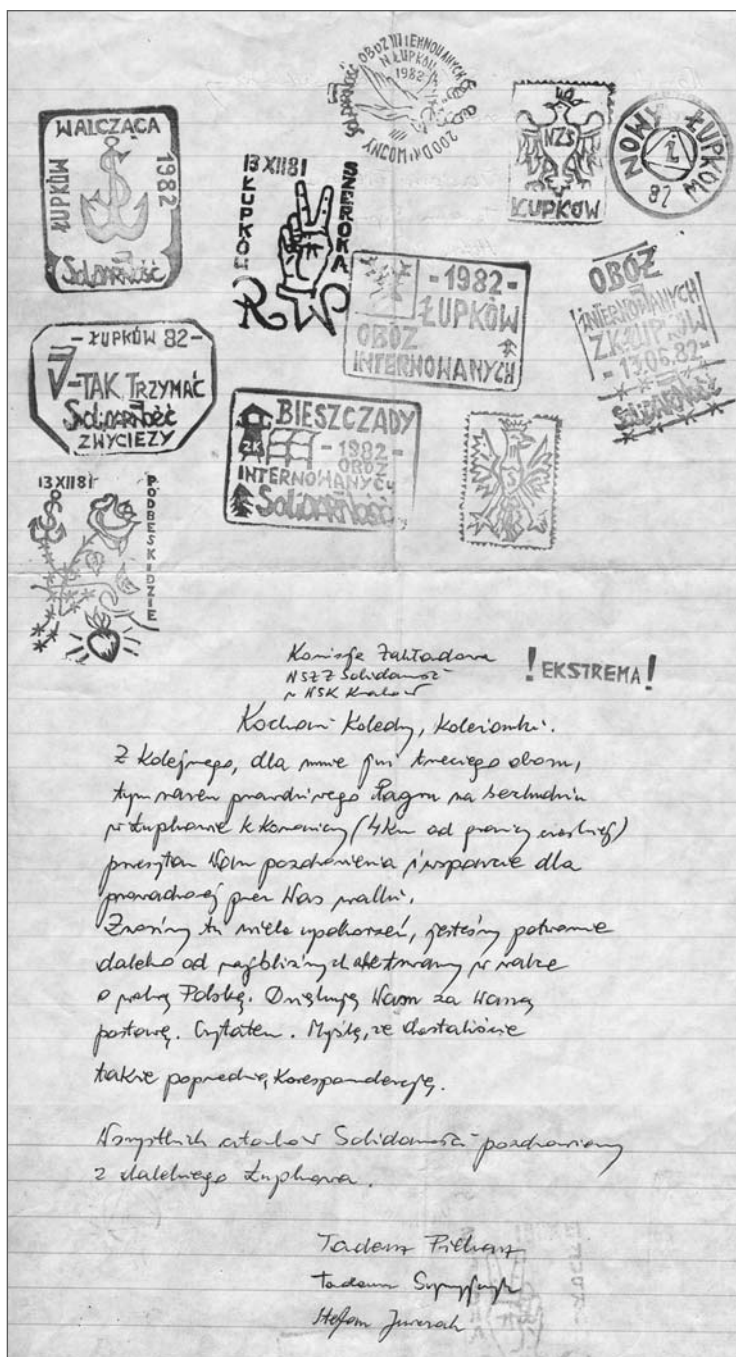 OBÓZ INTERNOWANYCH
W ŁUPKOWIE
1982
SOLIDARNOŚĆ
200 DNI WOJNY
WALCZĄCA
ŁUPKÓW
1982
Solidarność
13 XII 81
ŁUPKÓW
SZEROKA
NZS
ŁUPKÓW
NOWY ŁUPKÓW
82
- 1982 -
ŁUPKÓW
OBÓZ
INTERNOWANYCH
OBÓZ
INTERNOWANYCH
ZK ŁUPKÓW
- 13.06.82 -
SOLIDARNOŚĆ
- ŁUPKÓW 82 -
V-TAK TRZYMAĆ
Solidarność
ZWYCIĘŻY
BIESZCZADY
- 1982 -
OBÓZ
INTERNOWANYCH
Solidarność
S
13 XII 81
PODBESKIDZIE
Komisja Zakładowa
NSZZ Solidarność
w NSK Kraków
! EKSTREMA !
Kochani Koledzy, Koleżanki.
Z kolejnego, dla mnie już trzeciego obozu,
tym razem prawdziwego Łagru na bezludziu
w Łupkowie k Komańczy (4km od granicy czeskiej)
przesyłam Wam pozdrowienia i wsparcie dla
prowadzonej przez Was walki.
Znosimy tu wiele upokorzeń, jesteśmy potwornie
daleko od najbliższych ale trwamy w walce
o wolną Polskę. Dziękuję Wam za Waszą
postawę. Czytałem. Myślę, że dostaliście
także poprzednią korespondencję.
Wszystkich członków Solidarności pozdrawiamy
z dalekiego Łupkowa.
Tadeusz Piekarz
Tadeusz
Stefan Jurczak